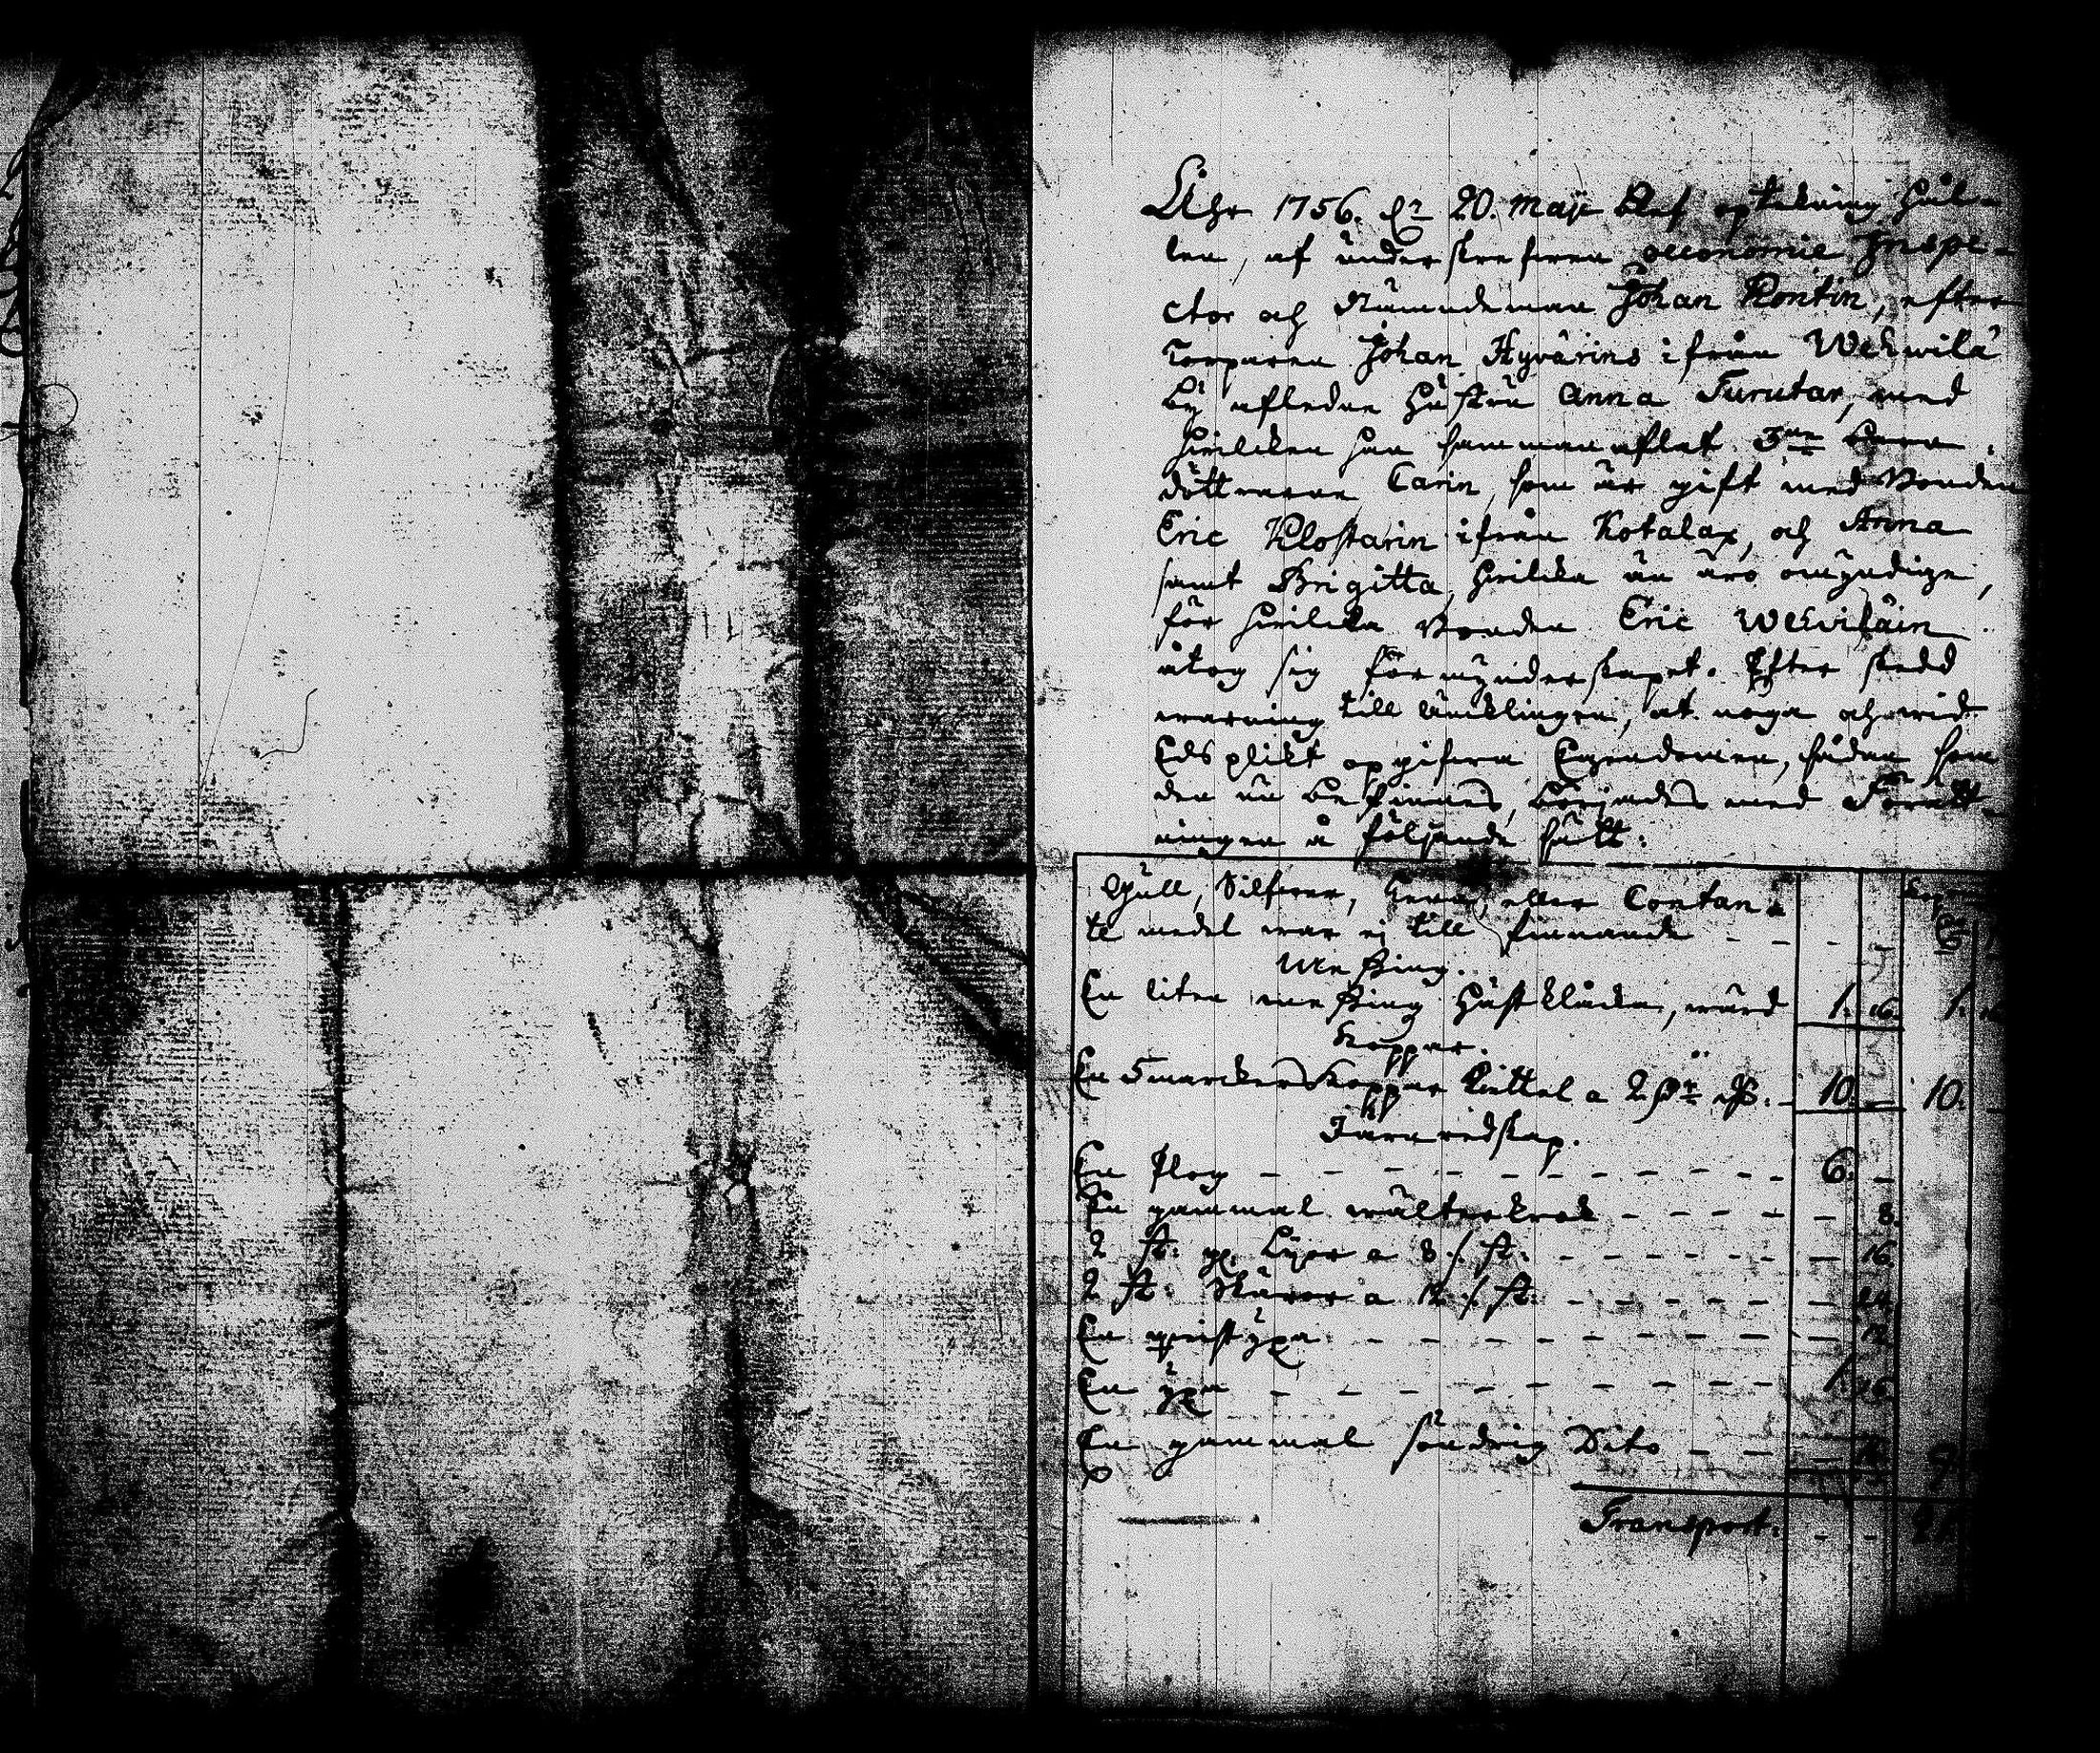 Åhr 1756. dn 20. Maji Blef optekning håll-
len, af underskrefven oeconomie Inspe-
ctor och Nämndeman Johan Rontin, efter
Torparen Johan Hyvärins ifrån Wehwilä
By afledne Hustru Anna Turutar, med
hvilcken han sammanaflat 3ne Barn
döttrarne Carin, som är gift med Bonden
Eric Klostarin ifrån Kotalax, och Anna
samt Brigitta, hvilcka än äro omyndige,
för hvilcka Bonden Eric Wehviläin
åtog sig förmynderskapet. Efter skedd
warning till Äncklingen, at noga och wid
Eds plikt opgifva Egendomen, sådan som
den nu befinnes, börjades med Förrätt-
ningen å följande sätt:
Gull, Silfver, eller Contan-
te medel war ej till finnande - - - -
Messing.
En liten messing Häst klåcka, wärd 1. 16. 1.
Koppar.
En 5 marckers Koppar Kiettel a 2 10. - 10.
Jern redskap.
En plog - - - - - - - - - 6. -
En gammal wälterkrok - - - - - - 8.
2 st. g. Lijor a 8 /. st. - - - - - - 16
2 st. Skäror a 12 /. st. - - - - - - 24
En qvistyxa - - - - - - - - 12
En yxa - - - - - - - - 1. 16
En gammal söndrig Dito - - -
Transport. - -